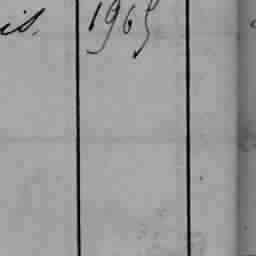 is. 1965